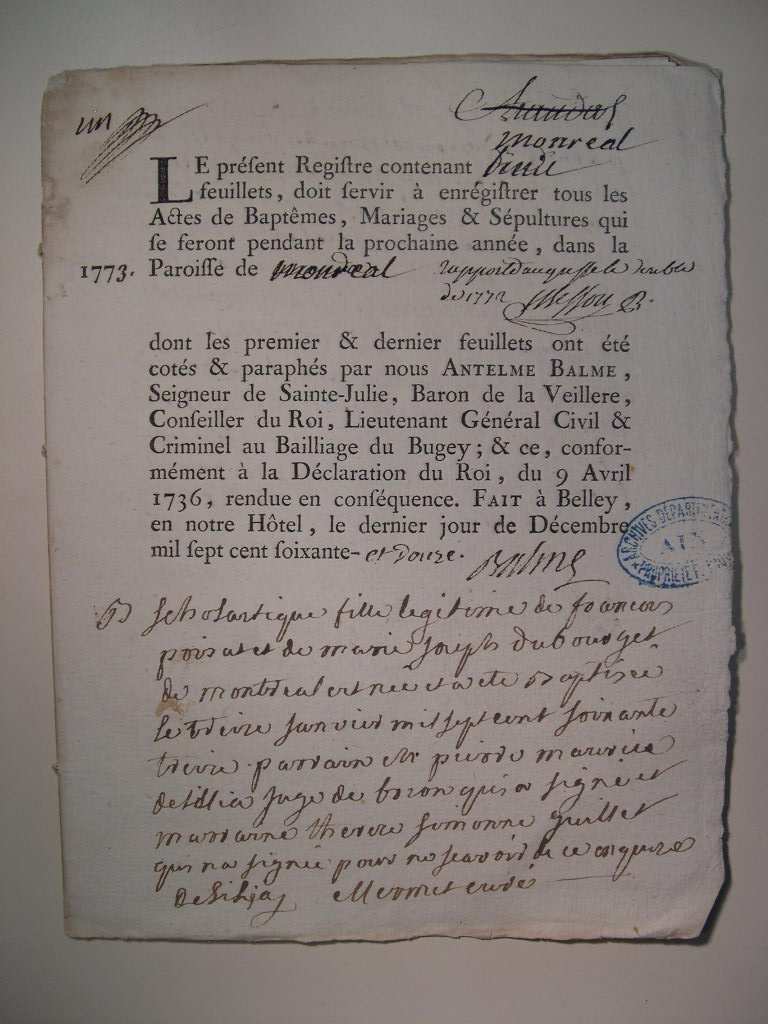 un
monreal
LE préſent Regiſtre contenant
feuillets, doit ſervir à enrégiſtrer tous les
Actes de Baptêmes, Mariages & Sépultures qui
ſe feront pendant la prochaine année, dans la
1773. Paroiſſe de montreal
de 1772
dont les premier & dernier feuillets ont été
cotés & paraphés par nous ANTELME BALME,
Seigneur de Sainte-Julie, Baron de la Veillere,
Conſeiller du Roi, Lieutenant Général Civil &
Criminel au Bailliage du Bugey; & ce, confor-
mément à la Déclaration du Roi, du 9 Avril
1736, rendue en conſéquence. FAIT à Belley,
en notre Hôtel, le dernier jour de Décembre
mil ſept cent ſoixante- et douze. Balme
ARCHIVES DÉPARTEMENTA
AIN
PROPRIÉTÉ PUB
B Scholastique fille legitime de francois
poisat et de marie Joseph dubourget
de montreal est née et a ete Baptisée
le treize janvier mil sept cent soixante
treize parrain sr pierre maurice
de Juge de qui a signé et
marraine simonne guillet
qui na signée pour ne scavoir de ce enquise
Mermet curé